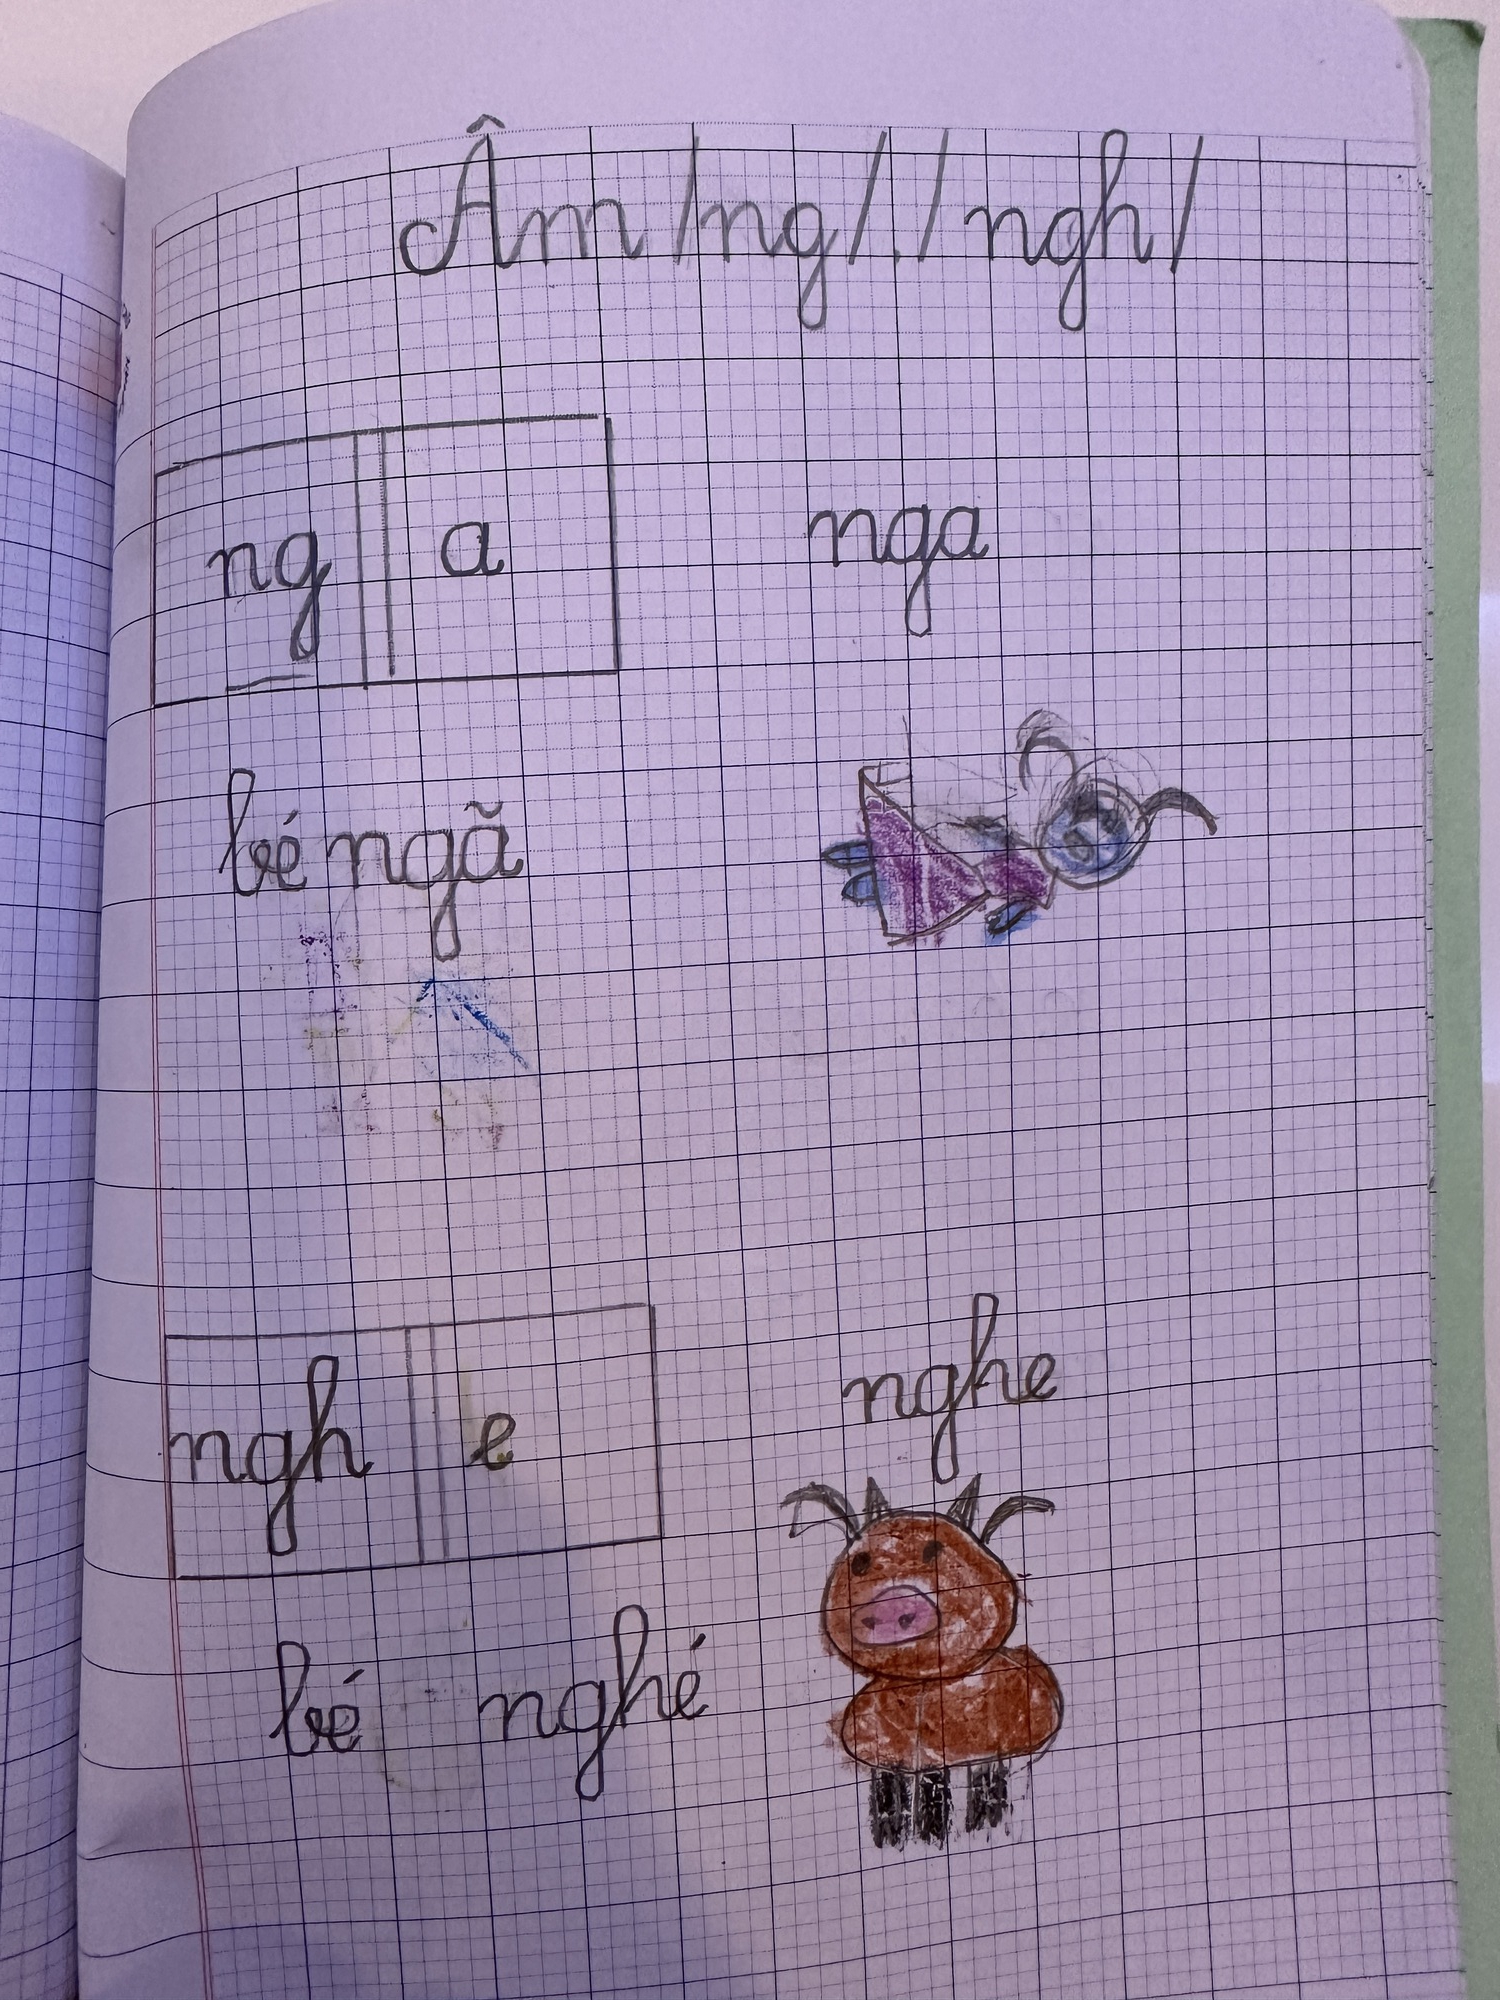 Âm /ng/./ngh/
ng a nga
bé ngã
ngh e nghe
bé nghé